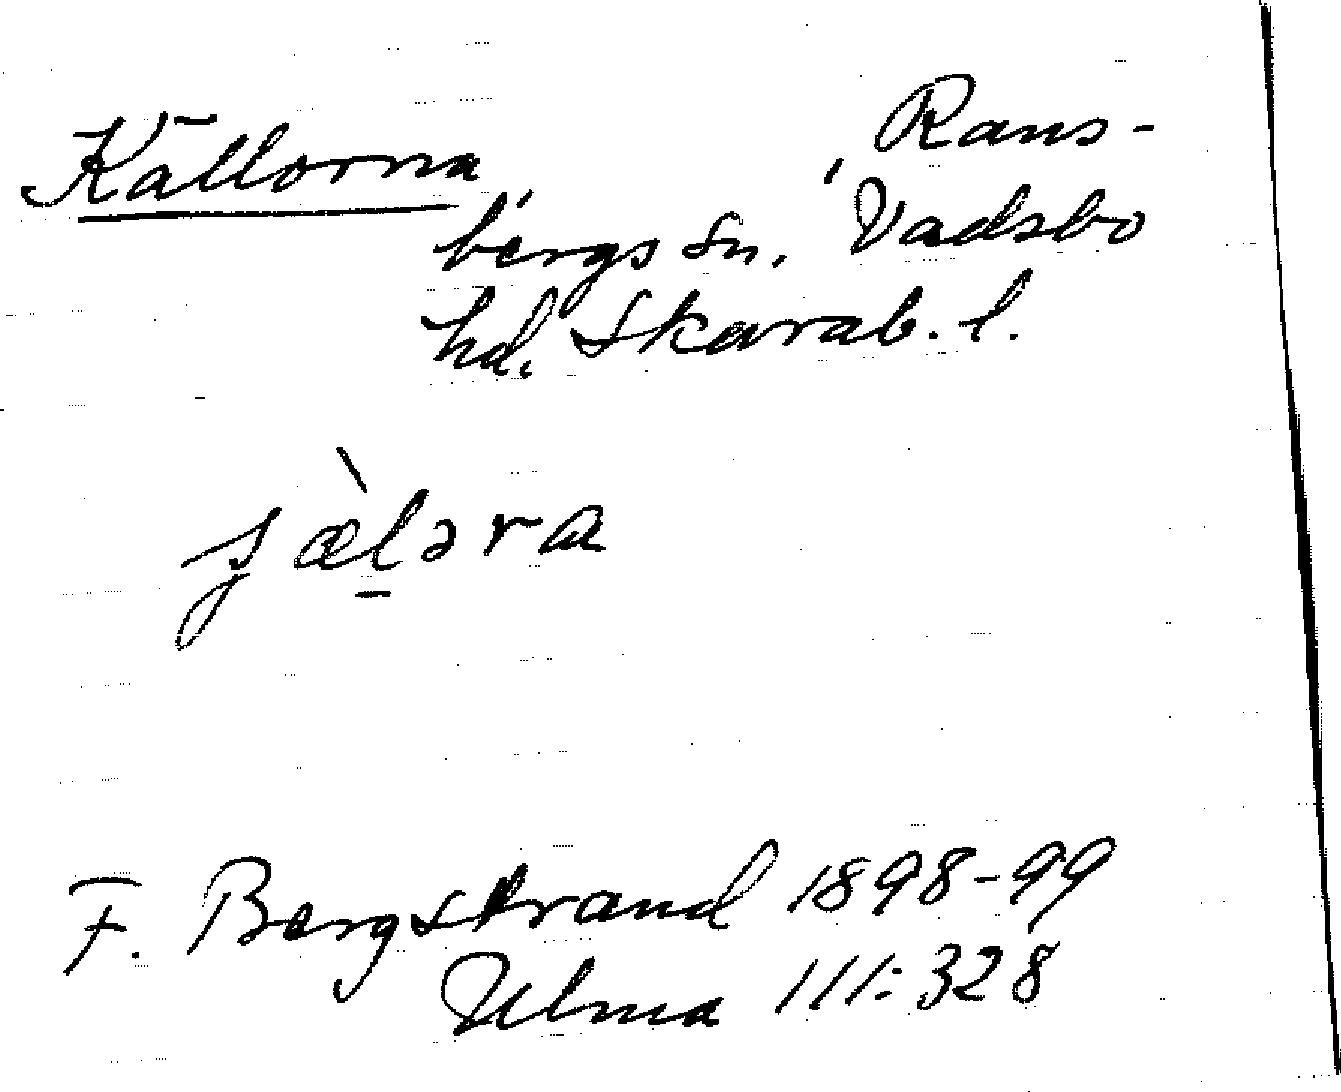 Källorna, Rans-
bergs sn, Vadsbo
hd. Skarab. l.
j̀æl̠əra
F. Bergstrand 1898-99
Ulma 111:328